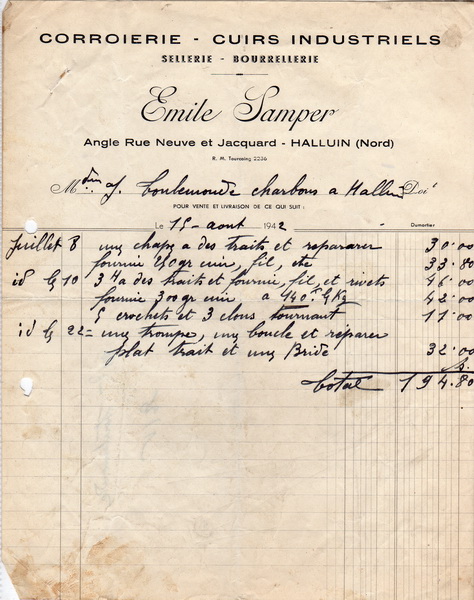 CORROIERIE - CUIRS INDUSTRIELS
SELLERIE - BOURRELLERIE
Emile Samper
Angle Rue Neuve et Jacquard - HALLUIN (Nord)
R. M. Tourcoing 2236
M J. Toulemonde charbons a Halluin Doit
POUR VENTE ET LIVRAISON DE CE QUI SUIT :
Le 15 - aout 1942 Dumortier
Juillet 8 une chape a des traits et repararer 30.00
fournie 250gr cuir, fil, etc 33.80
id le 10 3 a des traits et fournie, fil, et rivets 46.00
fournie 300gr cuir a 140f le Kg 42.00
5 crochets et 3 clous tournant 11.00
id le 22 = une troupe, une boucle et réparer
plat trait et une Bride 32.00
Total 194.80